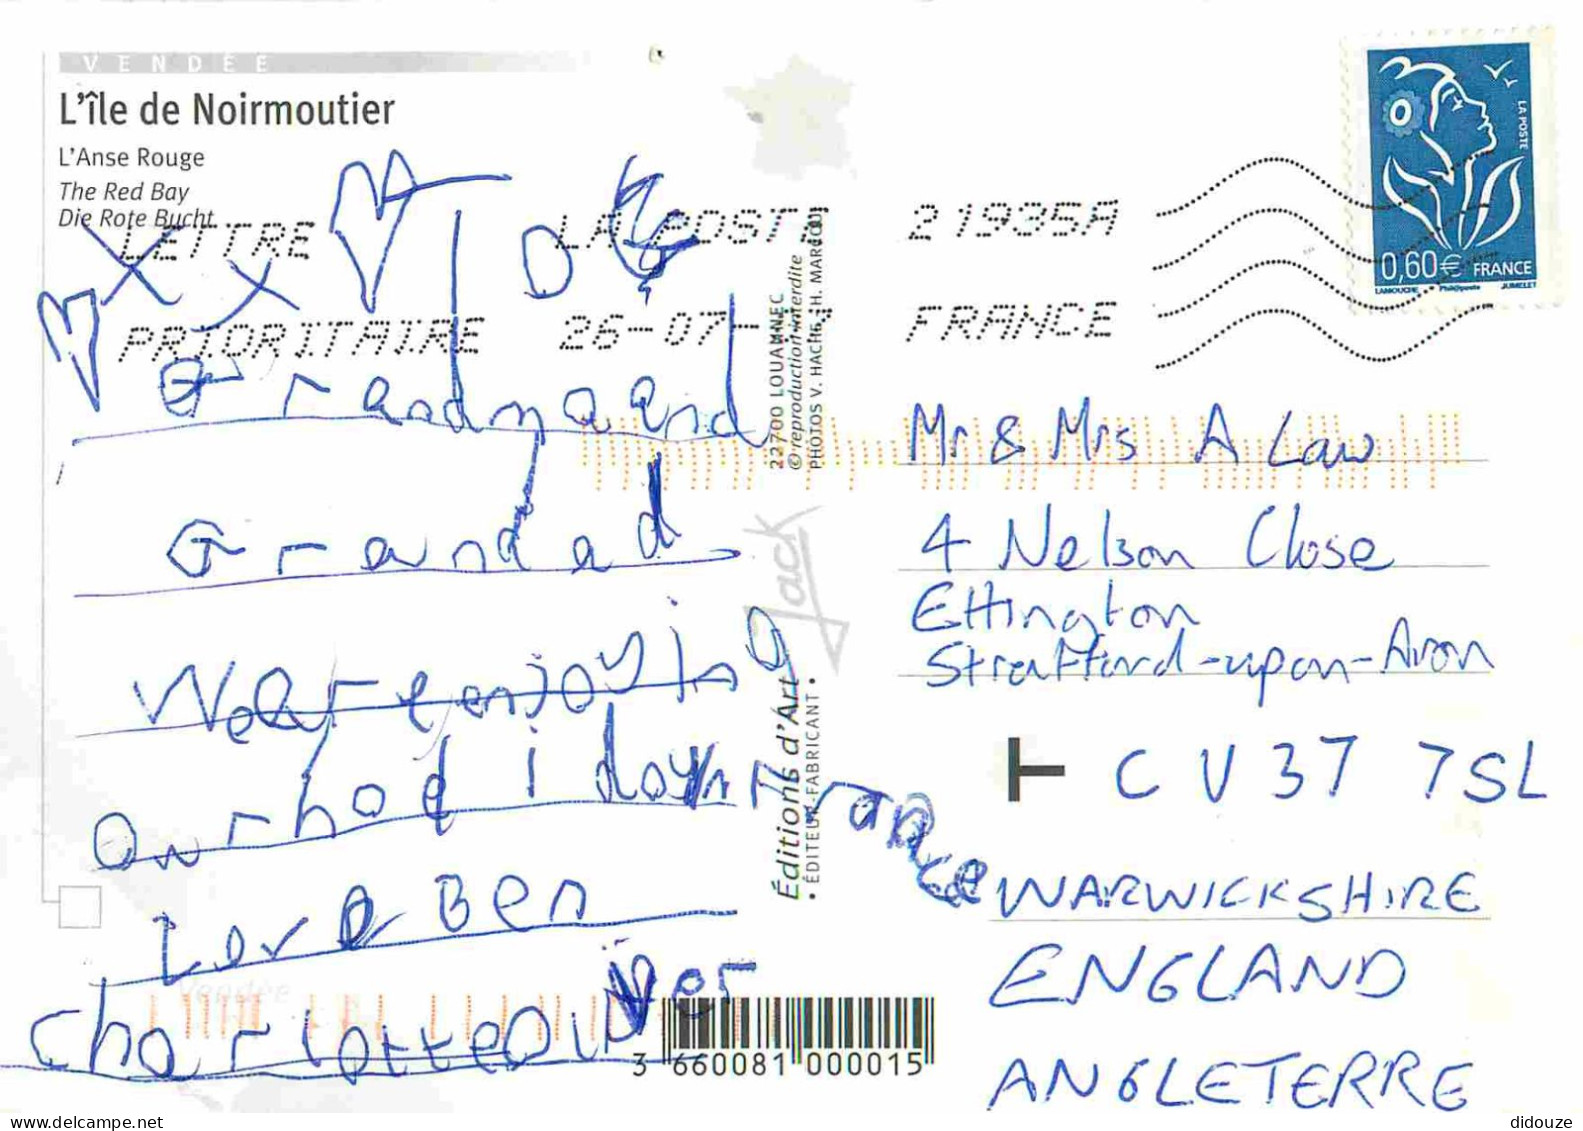 VENDÉE
L'île de Noirmoutier
L'Anse Rouge
The Red Bay
Die Rote Bucht
LETTRE
PRIORITAIRE
LA POSTE
26-07-
21935A
FRANCE
LA POSTE
0,60€ FRANCE
LAMOUCHE Phil@poste JUMELET
To
Grandma and
Grandad
We are enjoying
our holiday in France
Love Ben
Charlotte Oliver
22700 LOUANNEC
© reproduction interdite
PHOTOS V. HACHE
Jack
Éditions d'Art
• ÉDITEUR FABRICANT •
Vendée
3 660081 000015
Mr & Mrs A Law
4 Nelson Close
Ettington
Stratford-upon-Avon
CV37 7SL
WARWICKSHIRE
ENGLAND
ANGLETERRE
didouze